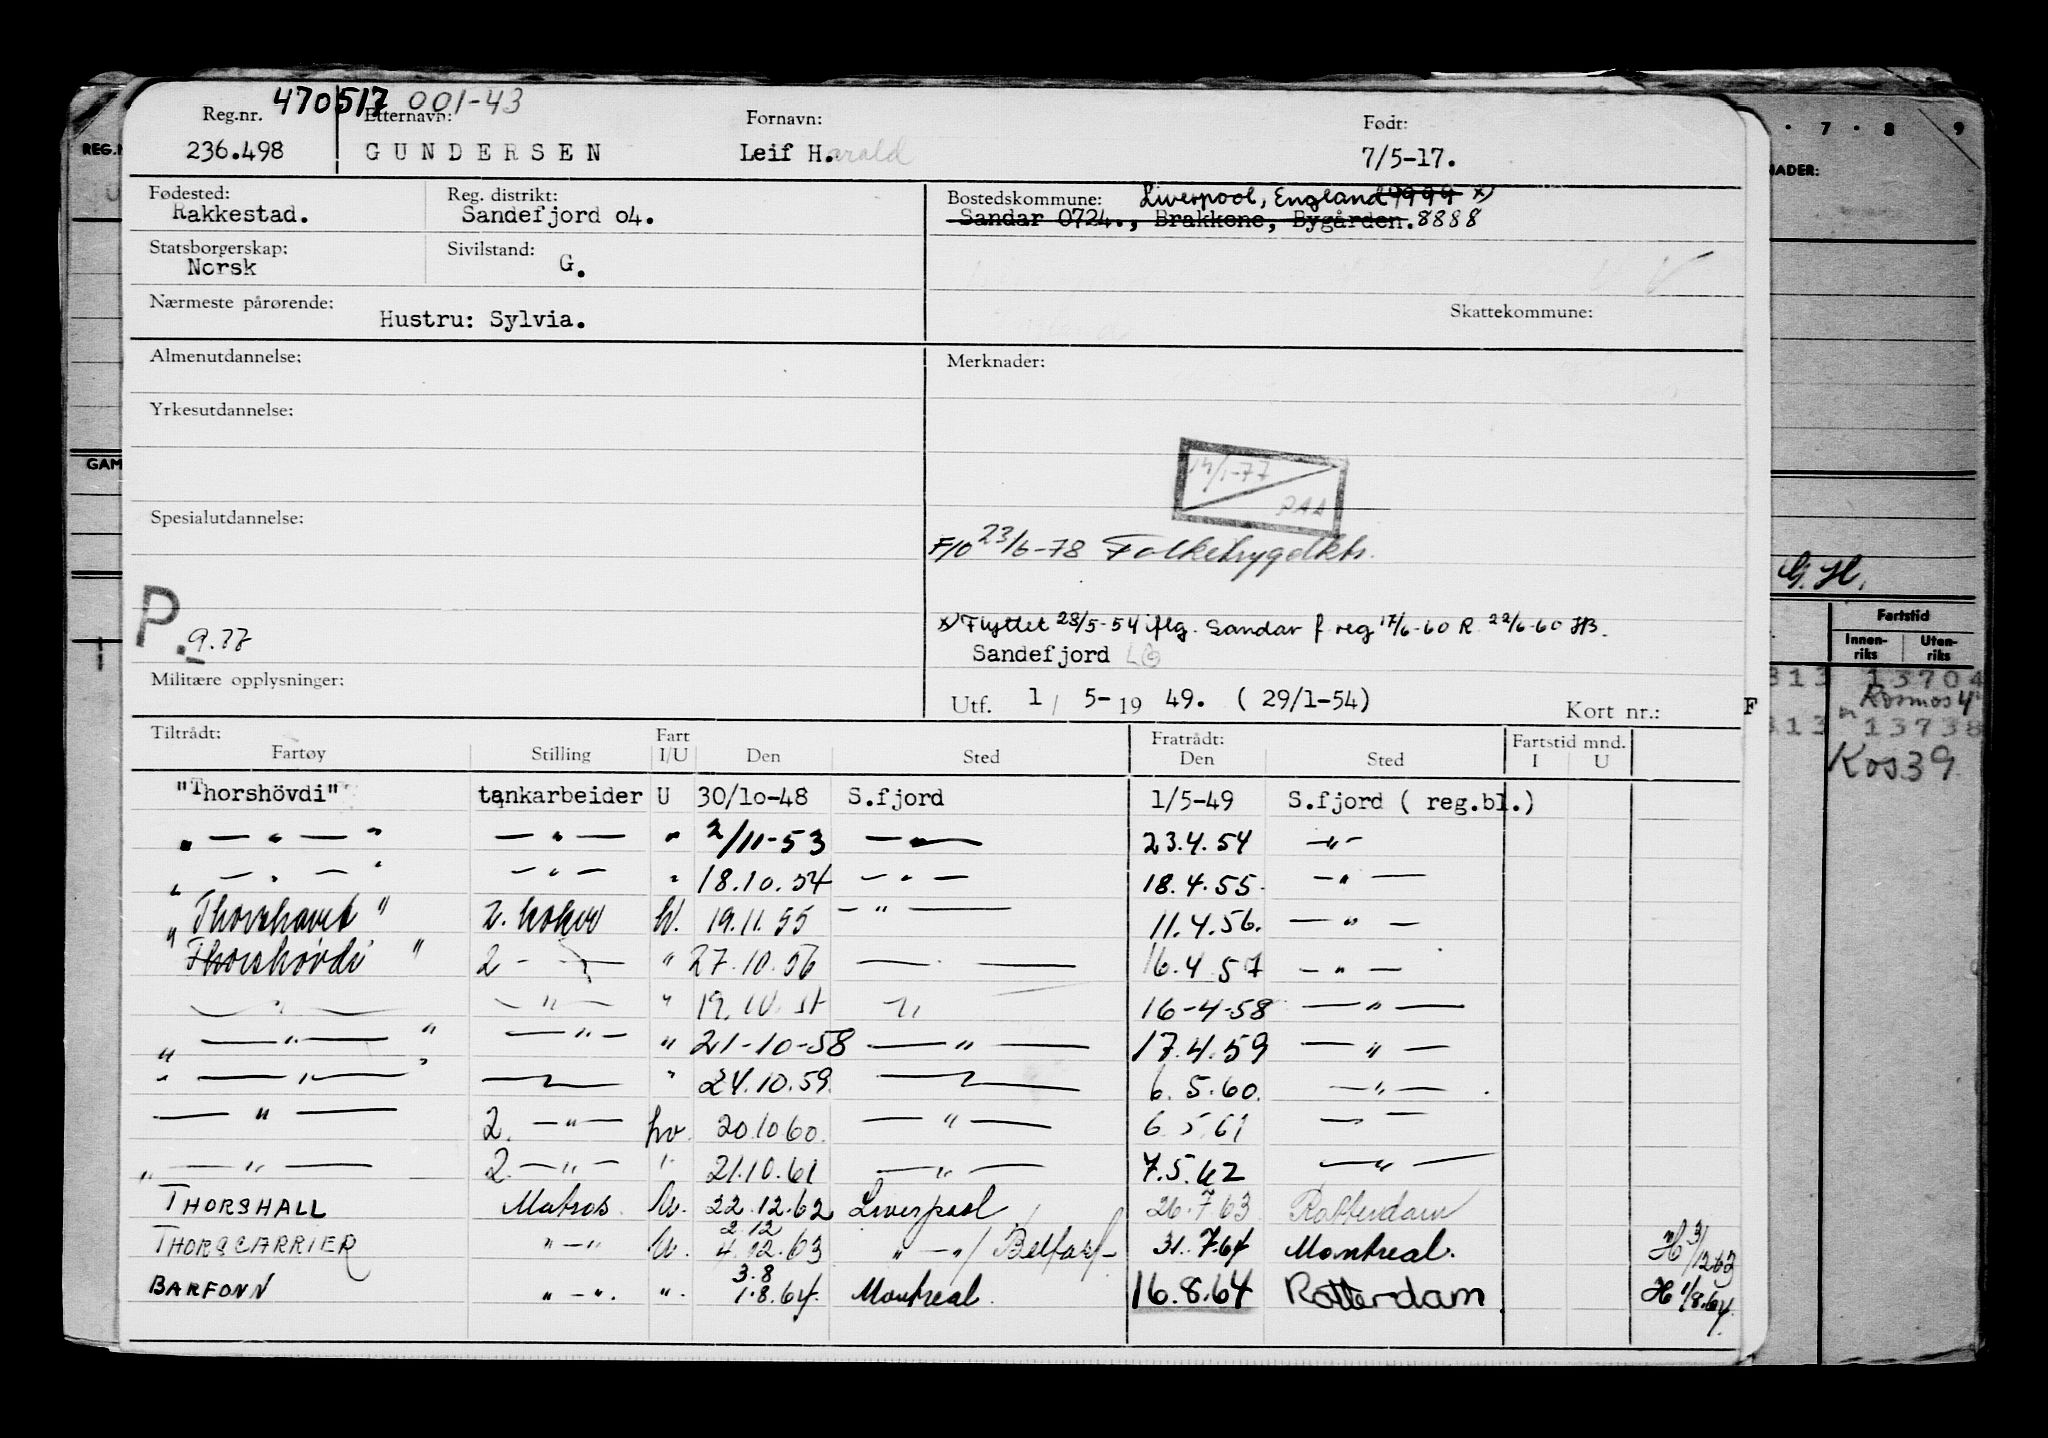 470517 001-43
Reg.nr. Etternavn: Fornavn: Født:
236.498 GUNDERSEN Leif H.arald 7/5-17.
Fødested: Reg. distrikt: Bostedskommune: Liverpool, England 9999 x)
Rakkestad. Sandefjord 04. Sandar 0724., Brakkene, Bygården. 8888
Statsborgerskap: Sivilstand:
Norsk G.
Nærmeste pårørende: Skattekommune:
Hustru: Sylvia.
Almenutdannelse: Merknader:
Yrkesutdannelse:
14/1-77
PAA
Spesialutdannelse:
F/O 23/6-78 Folketrygdktr.
P.
9.77
x) Flyttet 28/5-54 iflg. Sandar f reg 17/6-60 R 22/6-60 HB.
Sandefjord
Militære opplysninger:
Utf. 1/ 5-19 49. ( 29/1-54) Kort nr.:
Tiltrådt: Fart Fratrådt: Fartstid mnd.
Fartøy Stilling I/U Den Sted Den Sted I U
"Thorshövdi" tankarbeider U 30/10-48 S.fjord 1/5-49 S.fjord ( reg.bl.)
" — " — " — " — " 2/11-53 — " — 23.4.54 — " —
" — " — " — " — " 18.10.54 — " — 18.4.55. — " —
" Thorshavet " 2. koker hv. 19.11.55 — " — 11.4.56. — " —
" Thorshövdi " 2 — " — " 27.10.56 — " — 16.4.57 — " —
— " — — " — " 19.10.57 — " — 16-4-58 — " —
" — " — " — " — " 21-10-58 — " — 17.4.59 — " —
" — " — " — " — " 24.10.59. — " — 6.5.60. — " —
— " — 2. — " — hv. 20.10.60. — " — 6.5.61 — " —
" — " — 2. — " — " 21.10.61 — " — 7.5.62 — " —
THORSHALL Matros. U. 22.12.62 Liverpool 26.7.63 Rotterdam
2.12
THORSCARRIER " — " U. 4.12.63 " — " / Belfast — 31.7.64 Montreal. H 3/12 63
3.8
BARFONN " — ". ". 1.8.64. Montreal. 16.8.64 Rotterdam H 1/8.64.
REG.N
GAM
7 · 8 9
NADER:
G. H.
Fartstid
Innen-riks Uten-riks
313 13704
Kosmos 4
313 13738
Kos 39
F